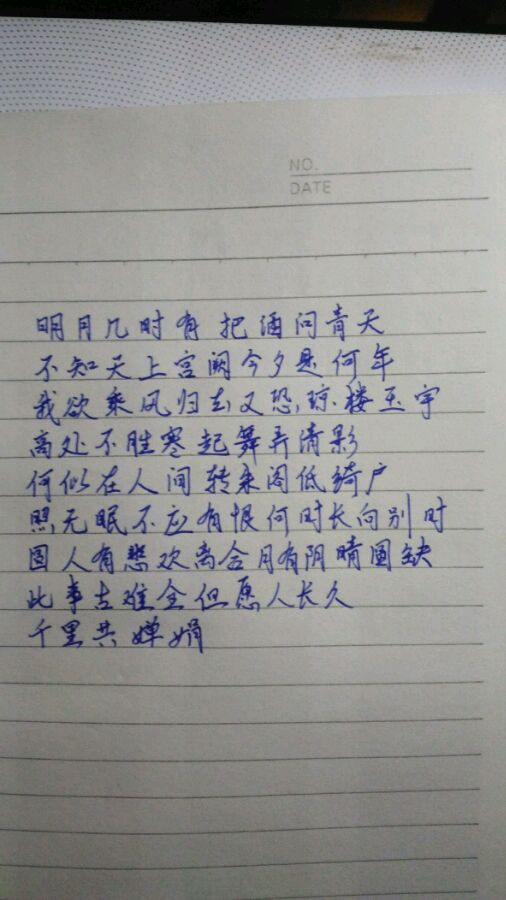 NO.
DATE
明月几时有把酒问青天
不知天上宫阙今夕是何年
我欲乘风归去又恐琼楼玉宇
高处不胜寒起舞弄清影
何似在人间转朱阁低绮户
照无眠不应有恨何时长向别时
圆人有悲欢离合月有阴晴圆缺
此事古难全但愿人长久
千里共婵娟